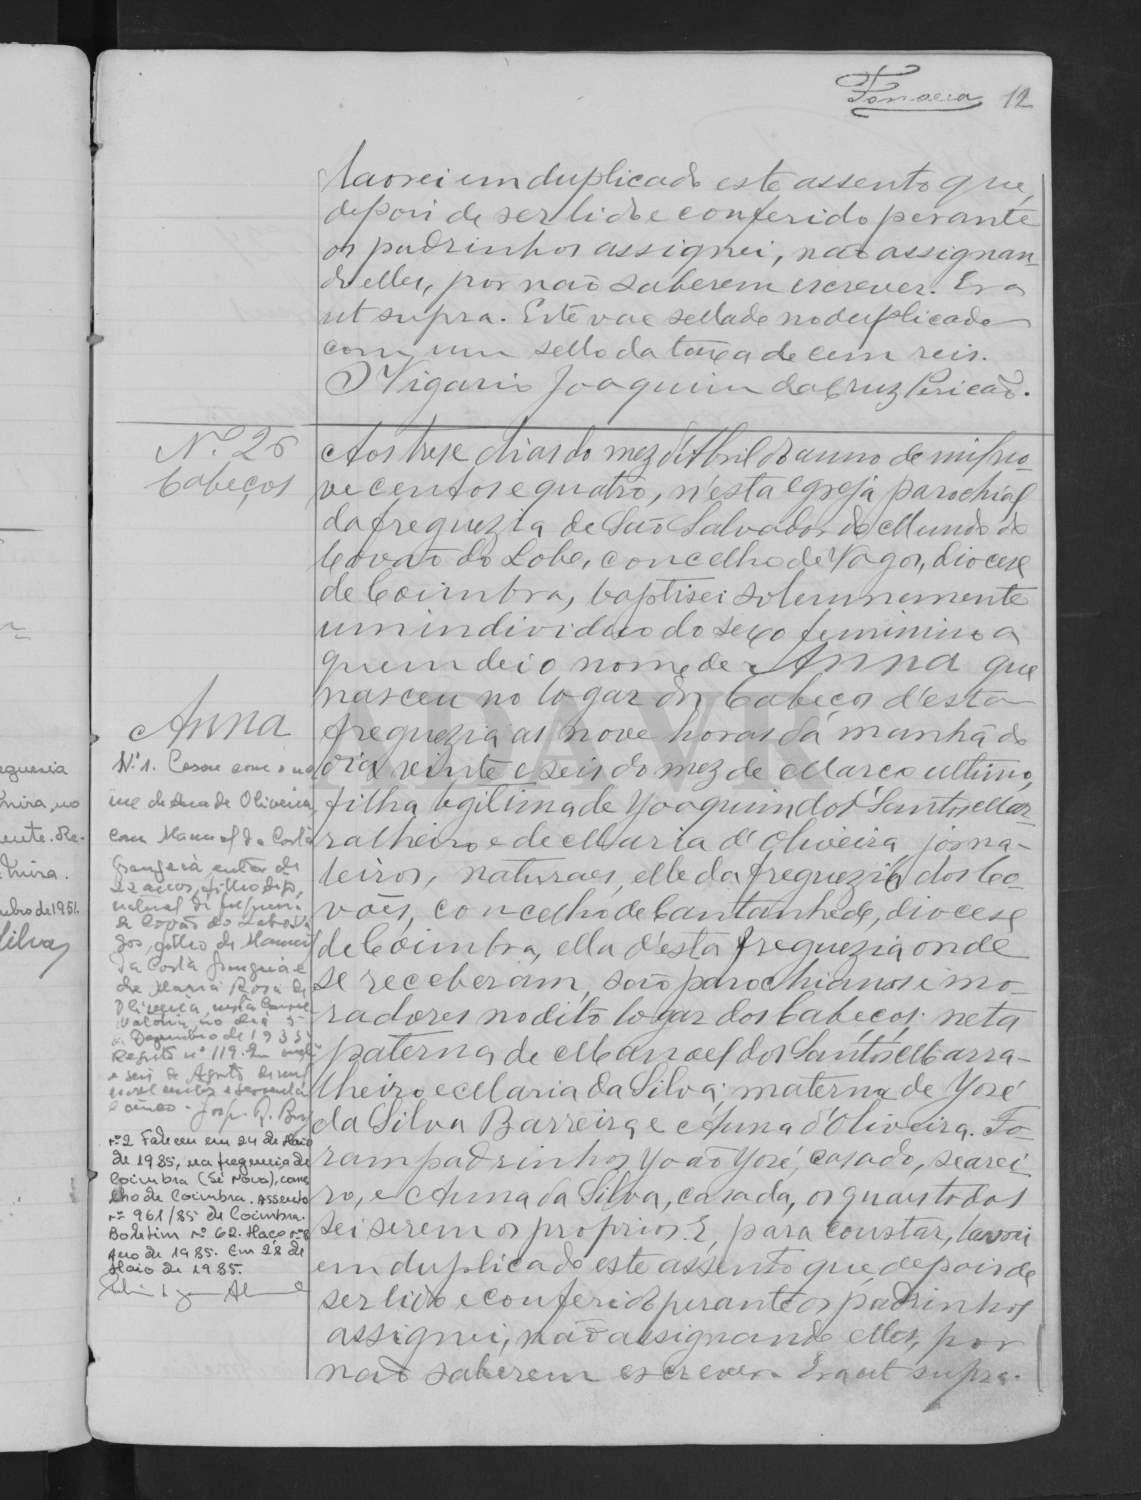 Fonseca 12
laorei em duplicado este assento que,
depois de ser lido e conferido perante
os padrinhos assignei, não assignan-
do elles, por não saberem escrever. Era
ut supra. Este vae sellado no duplicado
com um sello da taxa de cem reis.
O Vigario Joaquim da Cruz Pericão.
N.º 26
Cabeços
Anna
Aos treze dias do mez d'Abril do anno de mil no-
vecentos e quatro, n'esta egreja parochial
da freguezia de São Salvador do Mundo do
Covão do Lobo, concelho de Vagos, diocese
de Coimbra, baptisei solemnemente
um individuo do sexo feminino a
quem dei o nome de Anna que
nasceu no logar dos Cabeços d'esta
freguezia as nove horas da manhã do
dia vinte e seis do mez de Março ultimo,
filha legitima de Joaquim dos Santos Mar-
ralheiro e de Maria d'Oliveira, jorna-
leiros, naturaes, elle da freguezia dos Co-
vões, concelho de Cantanhede, diocese
de Coimbra, ella d'esta freguezia onde
se receberam, são parochianos e mo-
radores no dito logar dos Cabeços; neta
paterna de Manoel dos Santos Marra-
lheiro e Maria da Silva; materna de José
da Silva Barreira e Anna d'Oliveira. Fo-
ram padrinhos João José, casado, searei-
ro, e Anna da Silva, casada, os quaes todos
sei serem os proprios. E, para constar, lavrei
em duplicado este assento que, depois de
ser lido e conferido perante os padrinhos
assignei, não assignando elles, por
não saberem escrever. Era ut supra.
N.º 1. Casou com o no
me de Ana de Oliveira,
com Manuel da Costa
Grangeia, entor de
22 anos, filho di
natural da freguesia
de Covão do Lobo Va
gos, filho de Manuel
da Costa Grangeia e
de Maria Rosa de
Oliveira, nesta Conser
vatoria, no dia 5
de Dezembro de 1935
Registo nº 119. Em vinte
e seis de Agosto de mil
novecentos e
nº 2 Faleceu em 24 de Maio
de 1985, na freguesia de
Coimbra (Sé Nova), conce
lho de Coimbra. Assento
nº 961/85 de Coimbra.
Boletim nº 62. Maço nº 8
Ano de 1985. Em 28 de
Maio de 1985.
eguesia
mira, no
ente. Re-
mira.
ubro de 1951.
Silva
ADAVR